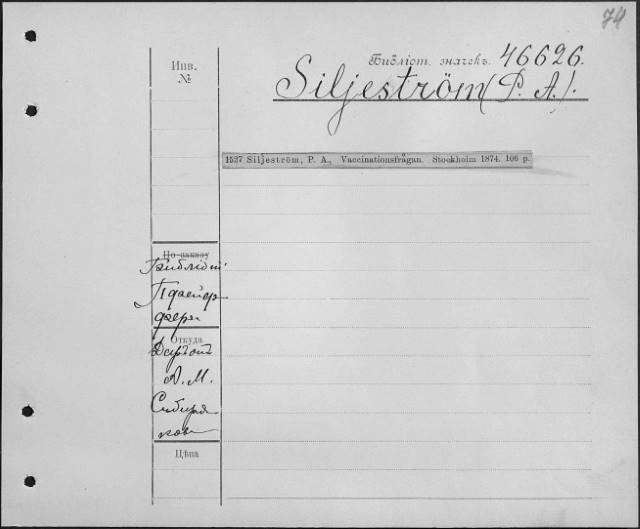 74
Инв.
№
Библіот. значекъ. 46626.
Siljeström (P. A.).
1527 Siljeström, P. A., Vaccinationsfrågan. Stockholm 1874. 106 p.
По заказу
Библіот
Пфейф
фера
Откуда
Даръ отъ
А. М.
Сибиря
кова
Цѣна